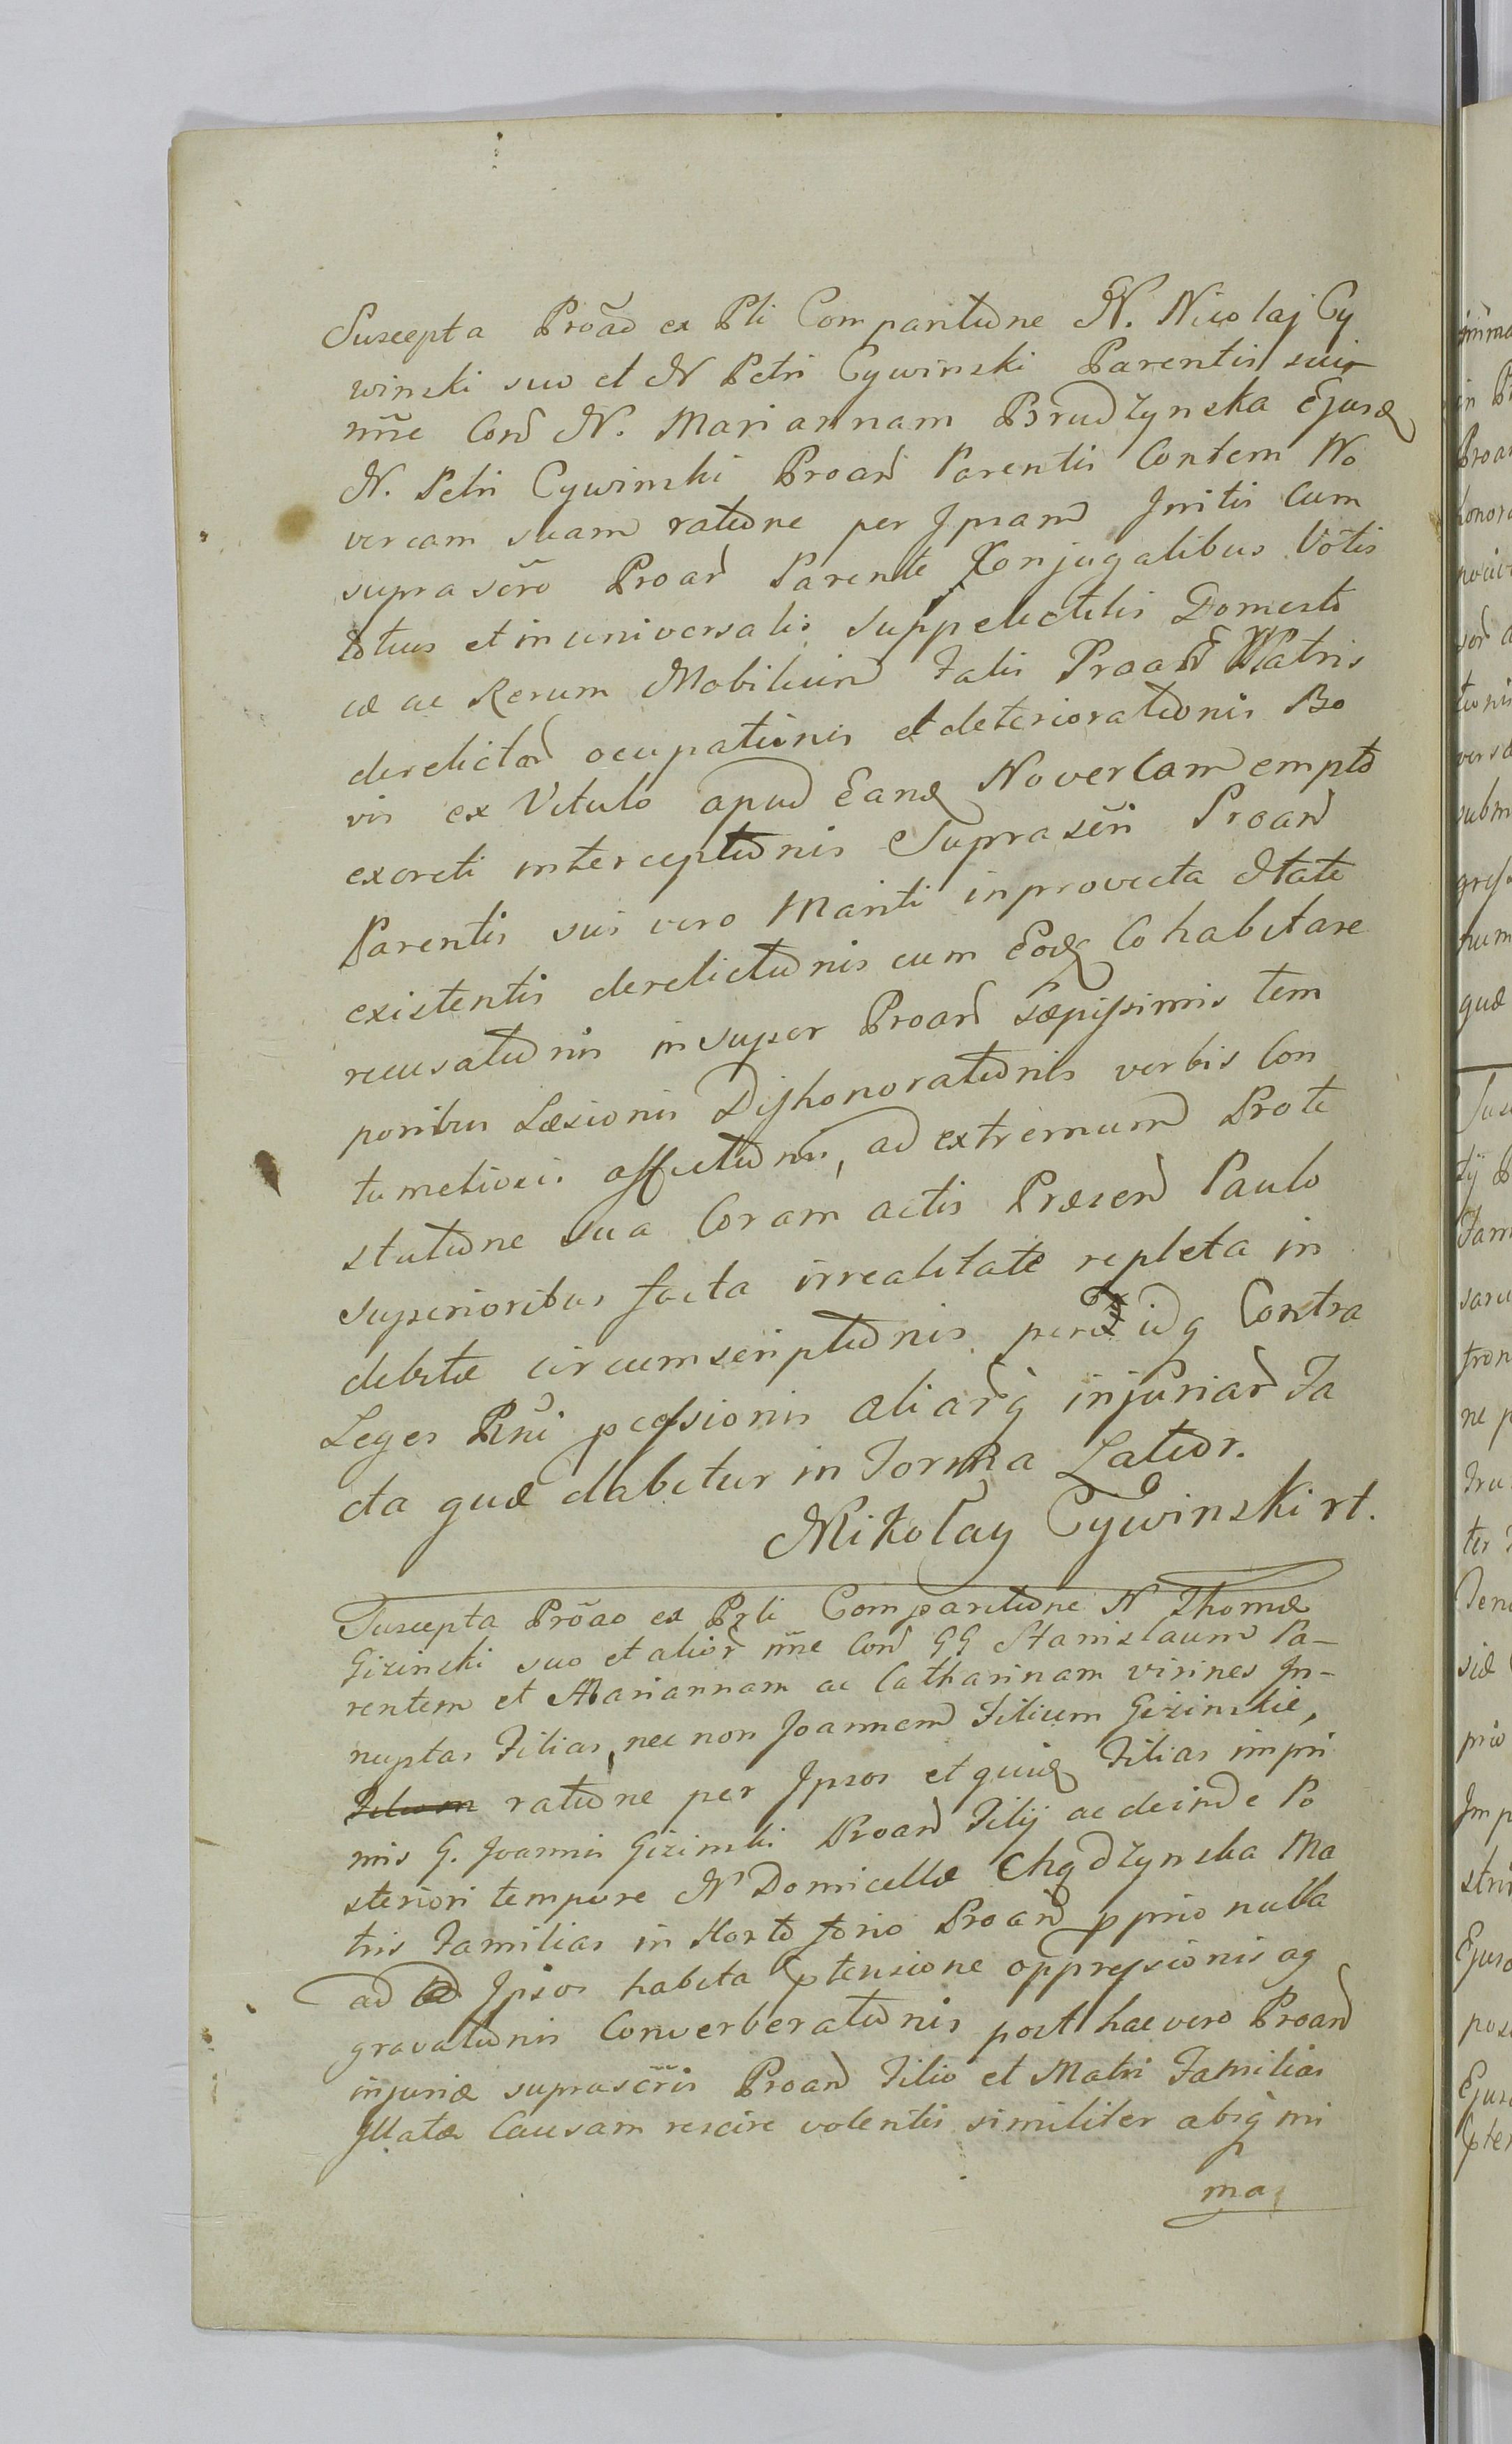 Suscepta Prõao ex Pli Comparitione N. Nicolaj Cy
winski suo et N Petri Cywinski Parentis sui
nne Con N. Mariannam Brudzynska Ejusd
N. Petri Cywinski Proan Parentis Contem No
vercam suam ratione per Ipsam Initis Cum
suprascro Proan Parente Conjugalibus Votis
totius et in universalis suppelectilis Domesti
cæ ac Rerum Mobilium Talis Proan Patris
derelictar ocupationis et deteriorationis Bo
vis ex Vitulo apud Eand Novercam empto
excreti interceptionis Suprascri Proan
Parentis sui vero Mariti in provecta Etate
existentis derelictionis cum Eod Cohabitare
recusationis insuper Proan Sæpissimis tem
poribus Læsionis Dishonorationis verbis Con
tumeliosis affectionis, ad extremum Prote
statione sua Coram actis Præsen Paulo
superioribus facta irrealitate repleta in
debitæ circumscriptionis idq Contra
Leges Rni pcessionis aliarq injuriar Fa
cta quæ dabitur in Forma Latior.
Mikołay Cywinski rt.
Suscepta Prõao ex Prli Comparitione N Thomæ
Gizinski suo et alior nne Con GG Stanislaum Pa-
rentem et Mariannam ac Catharinam virines In-
nuptas Filias, nec non Joannem Filium Gizinskie,
ratione per Ipsos et quid Filias impri
mis G. Joannis Gizinski Proan Filij ac deinde Po
steriori tempore N Domicellæ Chądzynska Ma
tris Familias in Horto Proan pprio nulla
ad Ipsos habita ptensione oppressionis ag
gravationis Converberationis post hac vero Proan
injuriæ suprascris Proan Filio et Matri Familias
Illatæ Causam rescire volentis similiter absq mi
ma